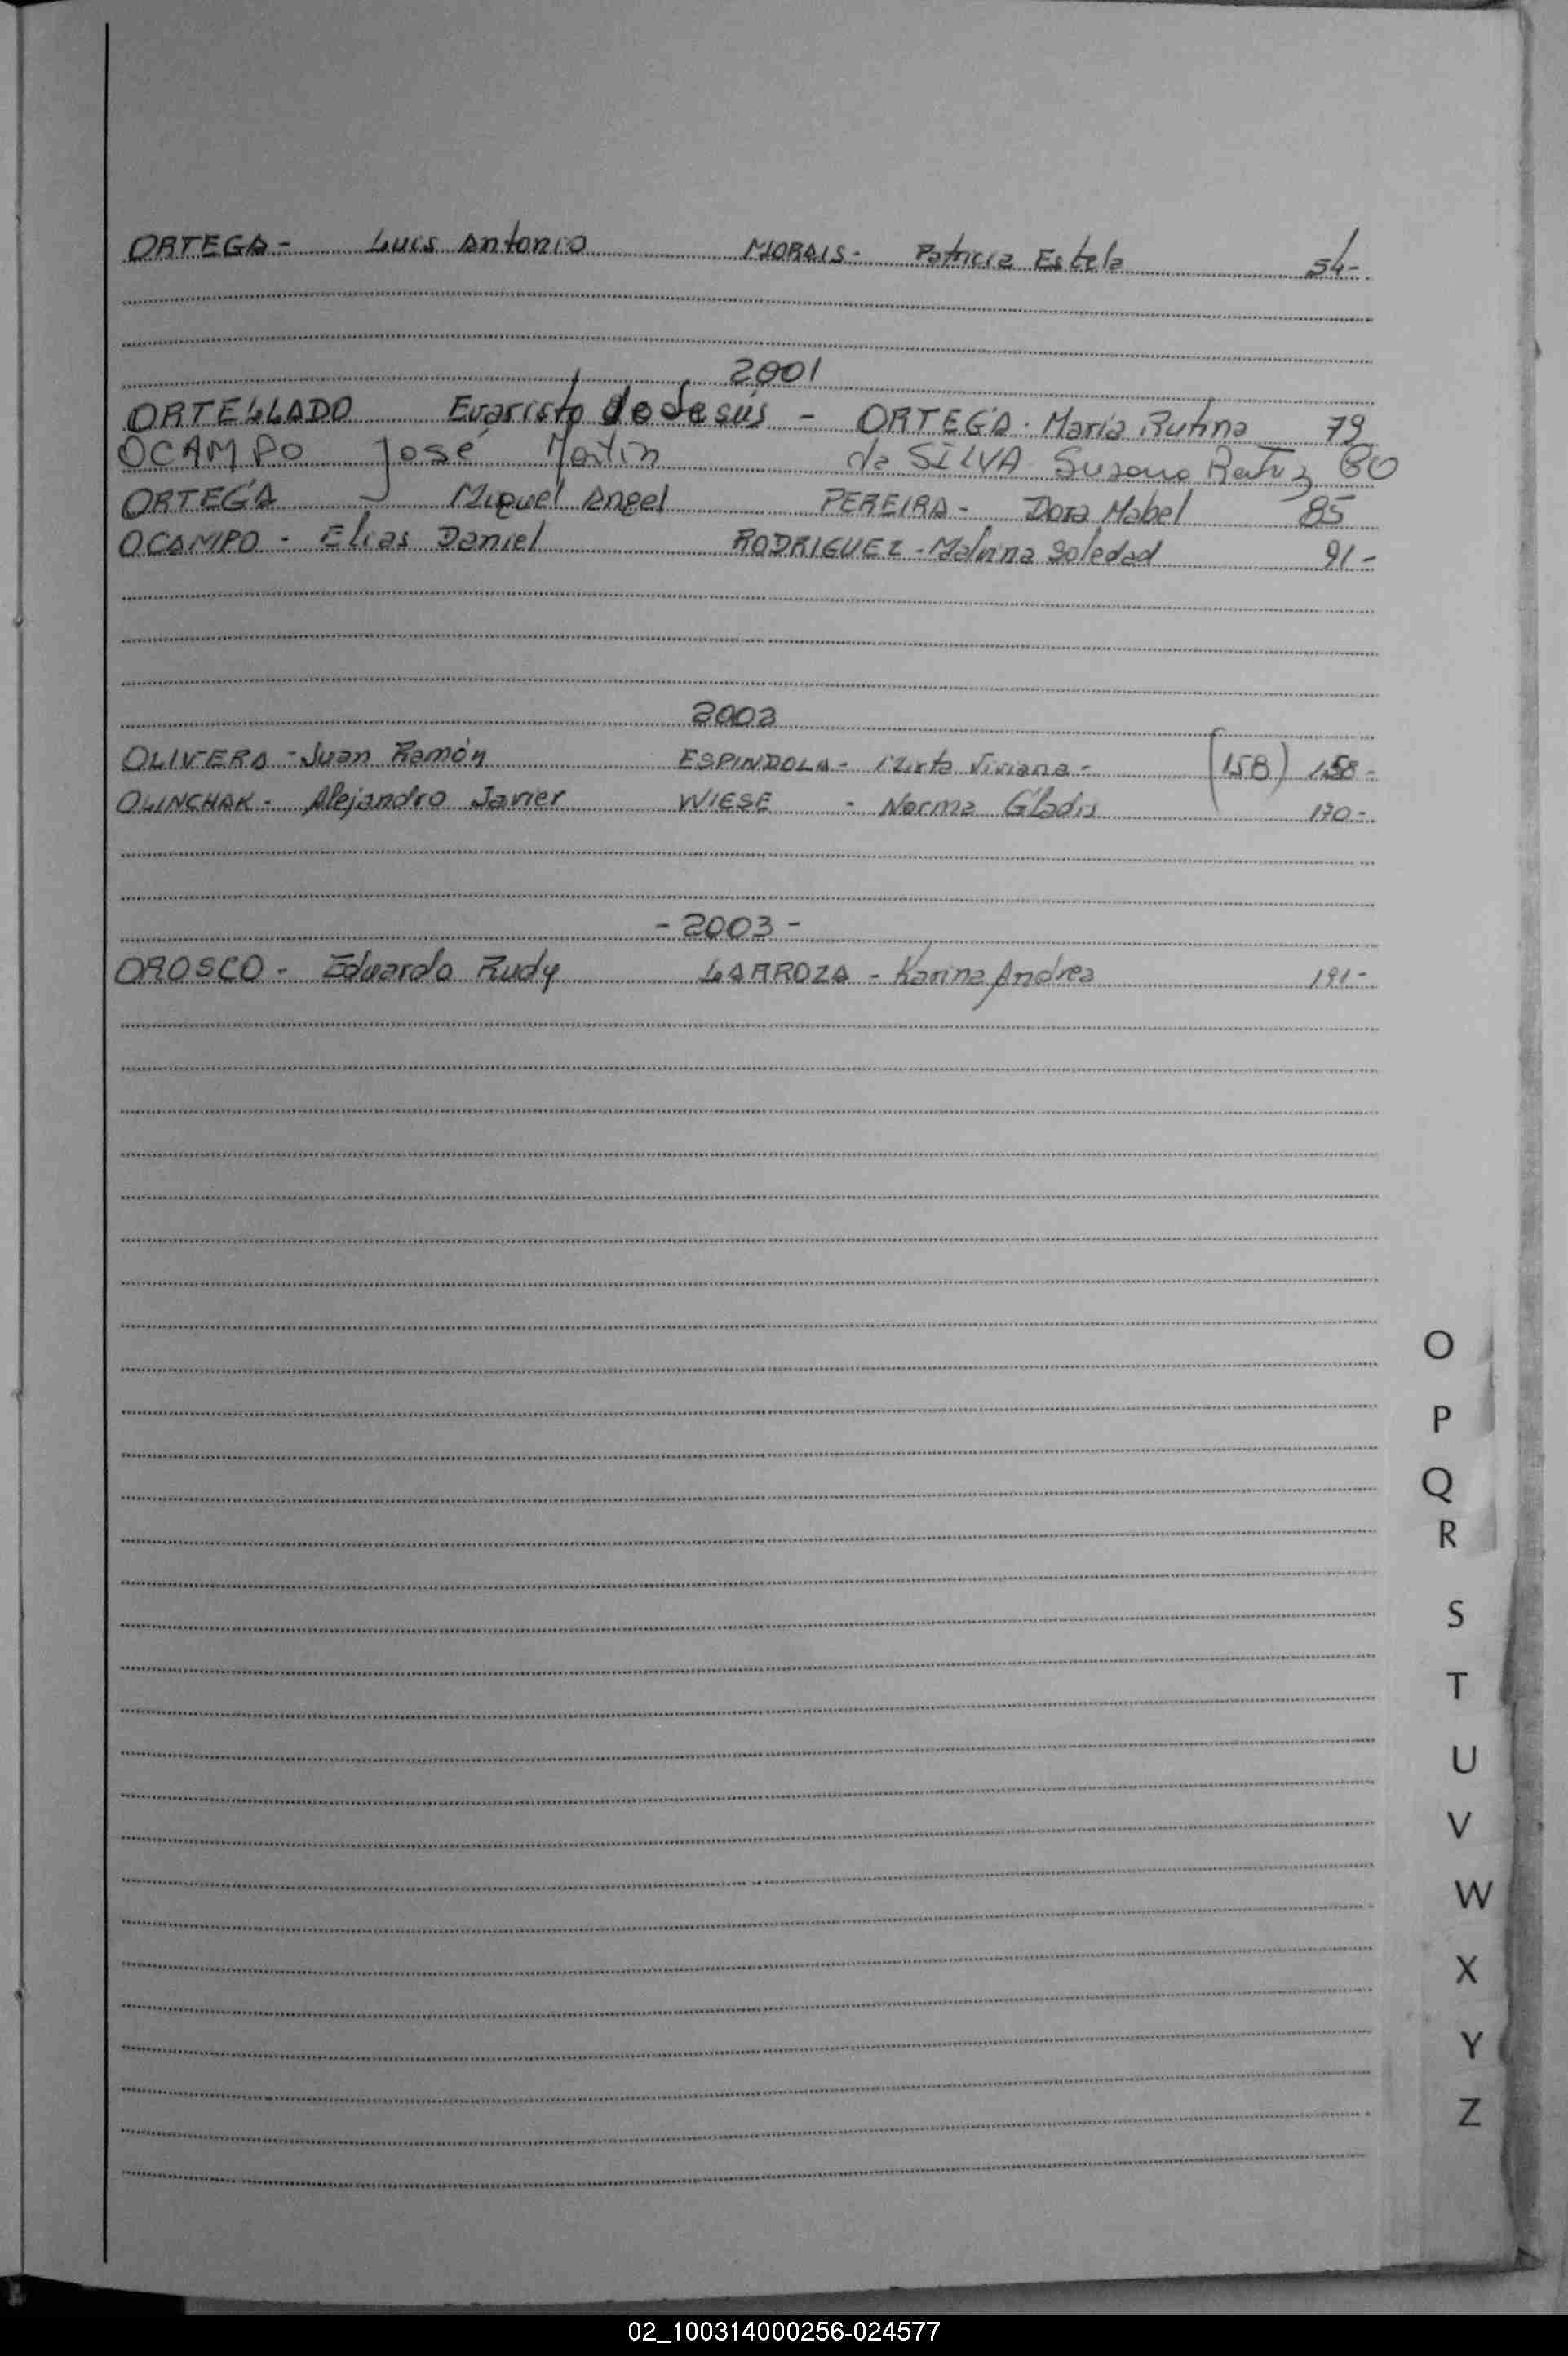 ORTEGA - Luis Antonio MORAIS - Patricia Estela 54-
2001
ORTELLADO Evaristo de Jesús - ORTEGA. Maria Rufina 79
OCAMPO José Martin da SILVA Susana Beatriz 80
ORTEGA Miguel Angel PEREIRA - Dora Mabel 85
OCAMPO - Elias Daniel RODRIGUEZ - Malvina Soledad 91-
2002
OLIVERA - Juan Ramón ESPINDOLA - Mirta Viviana - (158) 158-
OLINCHAK - Alejandro Javier WIESE - Norma Gladis 170-
- 2003 -
OROSCO - Eduardo Rudy LARROZA - Karina Andrea 191-
O
P
Q
R
S
T
U
V
W
X
Y
Z
02_100314000256-024577